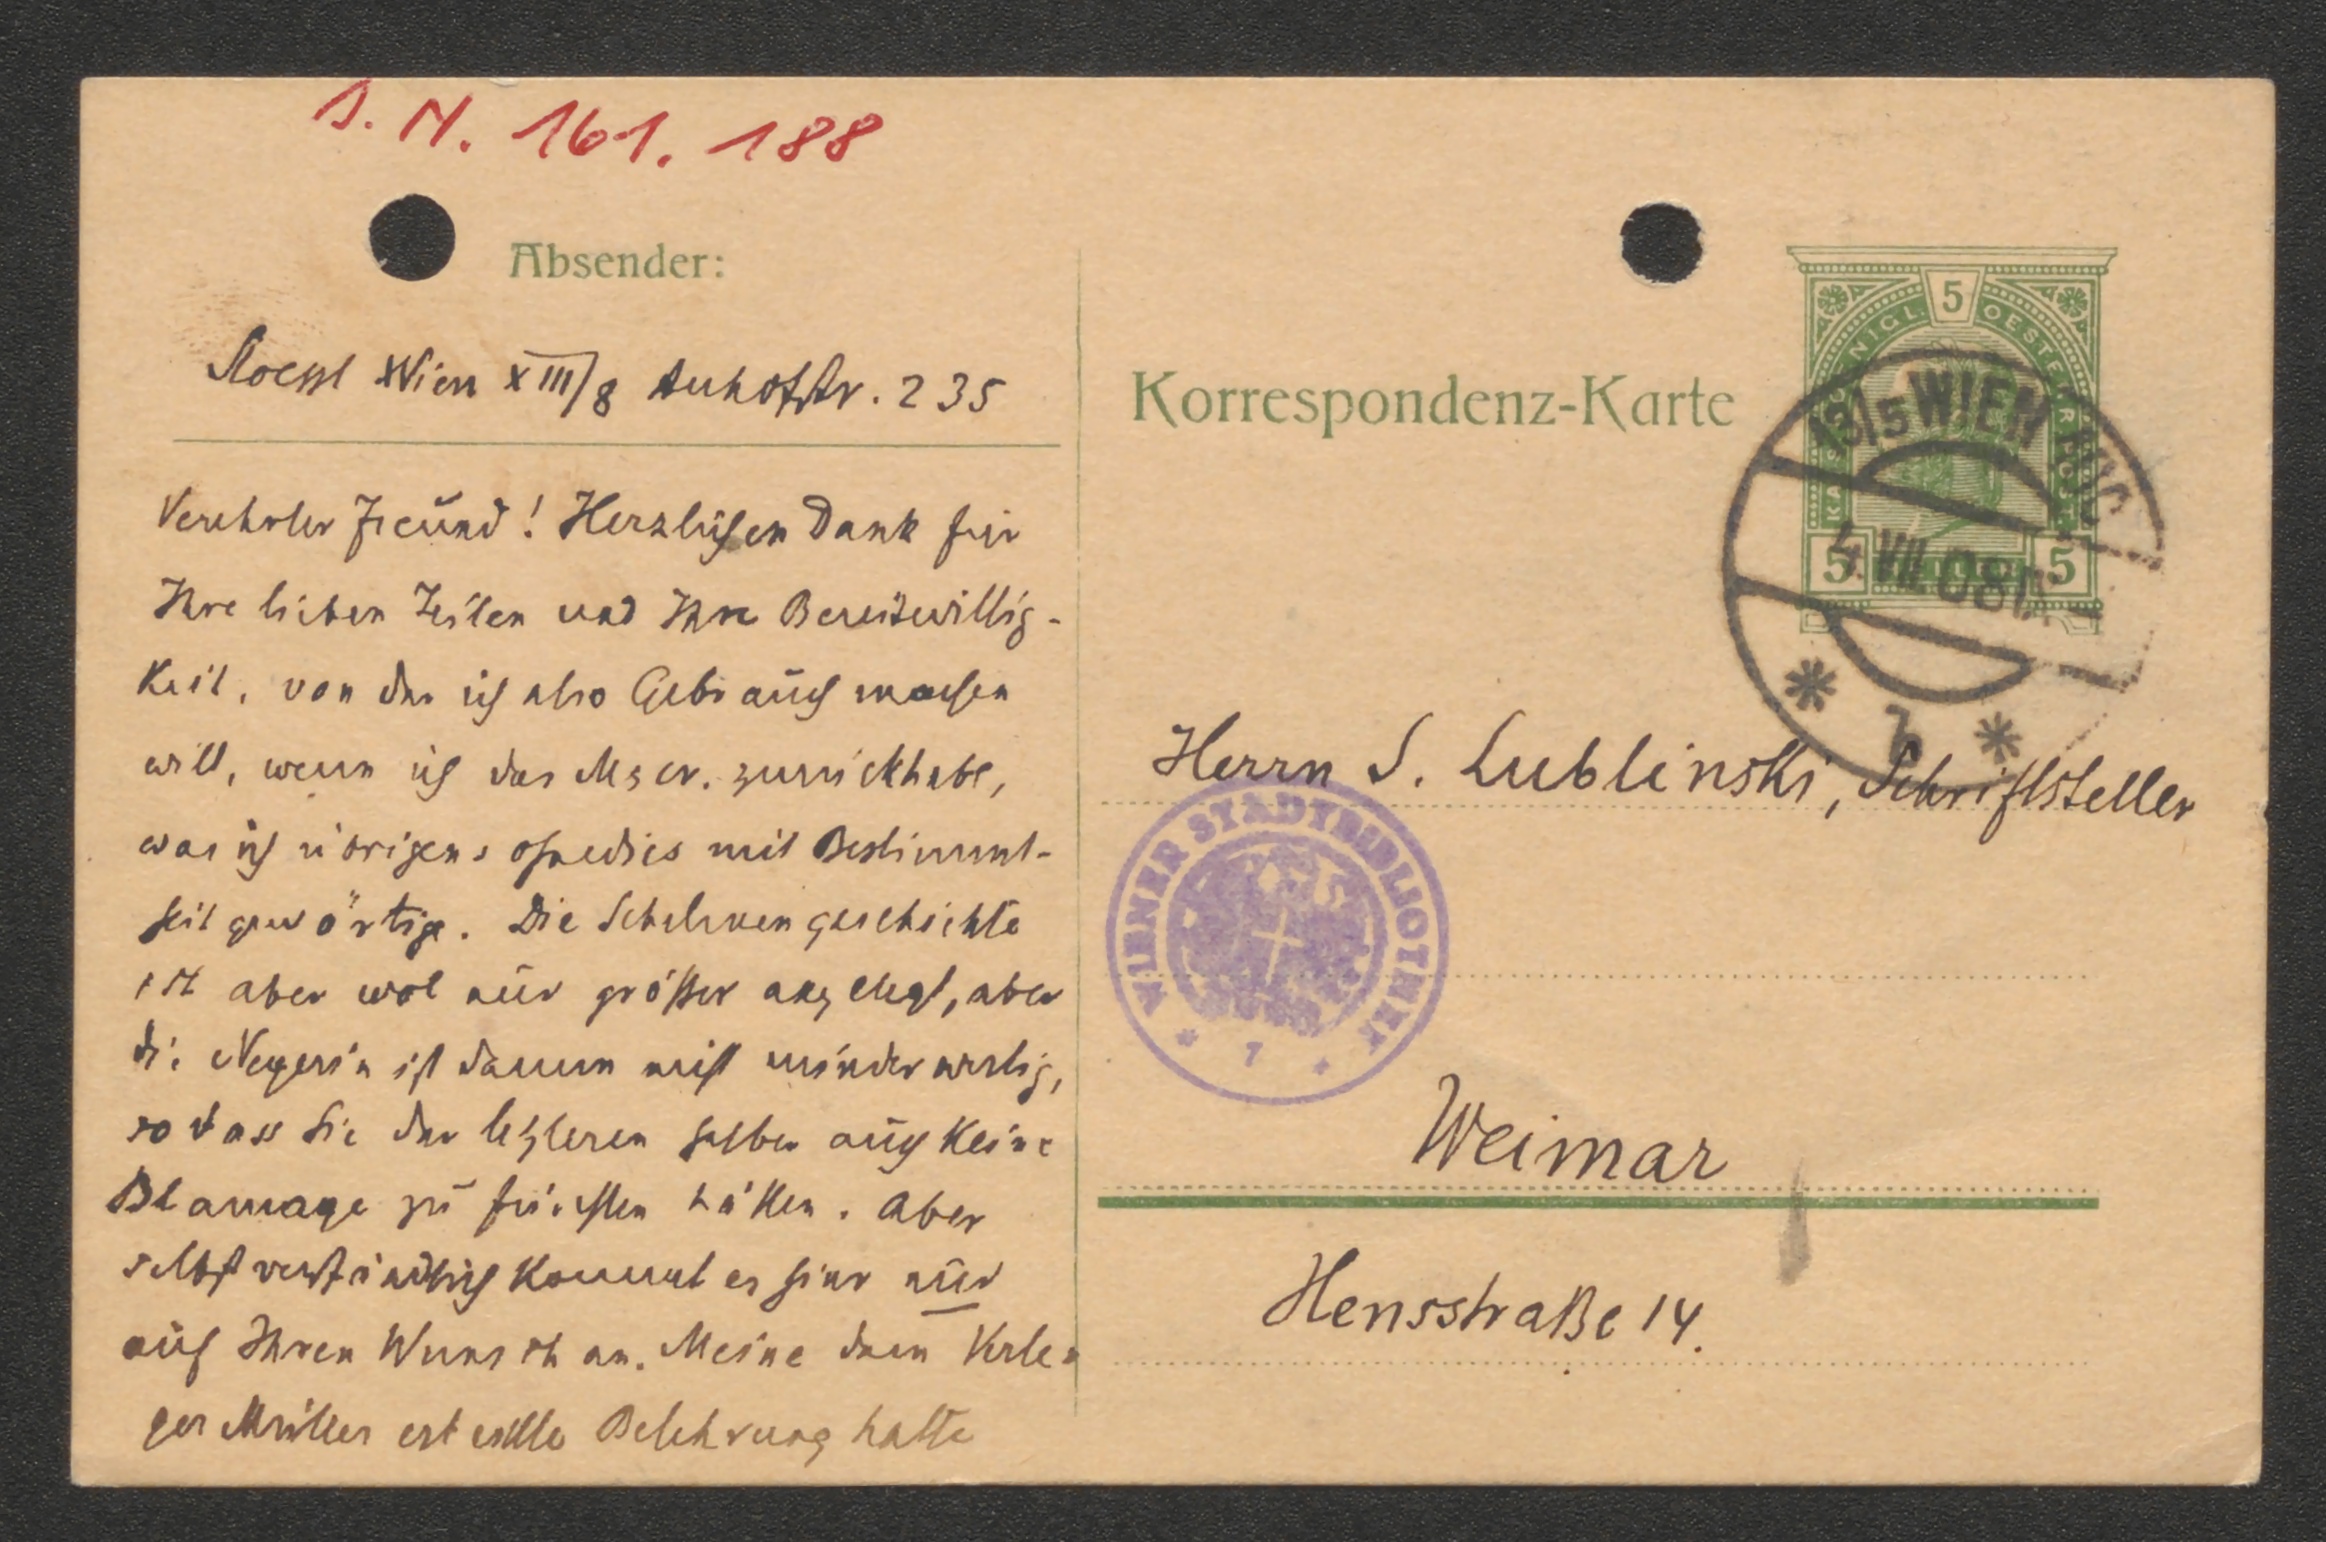 I. N. 161.188
Absender:
Stoessl Wien XIII/8 Auhofstr. 235
Verehrter Freund! Herzlichen Dank für
Ihre lieben Zeilen und Ihre Bereitwillig-
keit, von der ich also Gebrauch machen
will, wenn ich das Mscr. zurückhabe,
was ich übrigens ohnedies mit Bestimmt-
heit gewärtige. Die Schelmengeschichte
ist aber wol nur größer angelegt, aber
die Negerin ist darum nicht minderwertig,
so dass Sie der letzteren halber auch keine
Blamage zu fürchten hätten. Aber
selbstverständlich kommt es hier nur
auf Ihren Wunsch an. Meine dem Verle-
ger Müller erteilte Belehrung hatte
Korrespondenz-Karte
5
KAIS. KOENIGL. OESTERR. POST
5 HELLER 5
13/5 WIEN
4 VII 08
b
Herrn S. Lublinski, Schriftsteller
WIENER STADTBIBLIOTHEK
* 7 *
Weimar
Hensstraße 14.